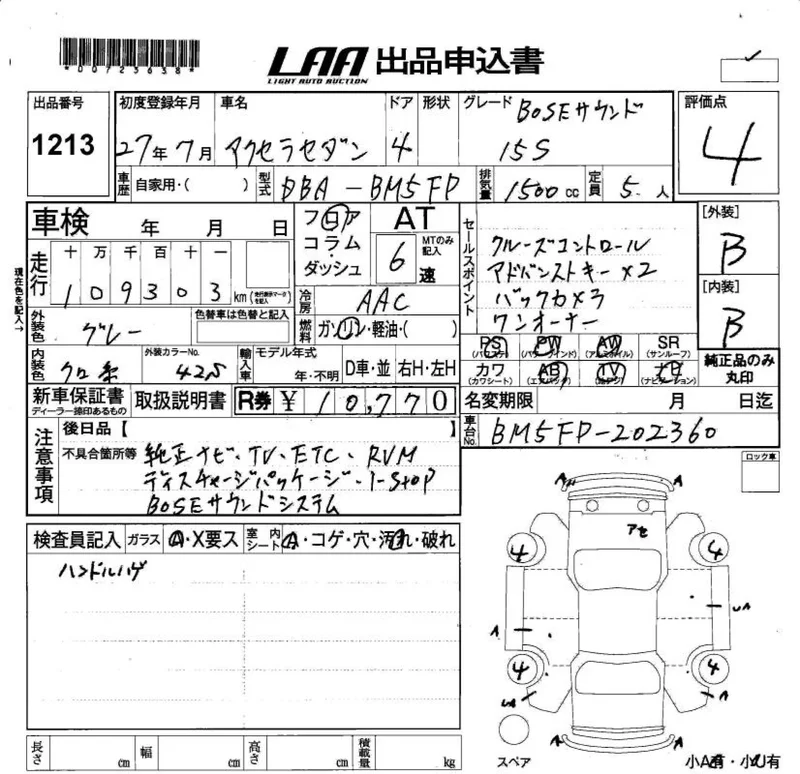 *00723638*
LAA 出品申込書
LIGHT AUTO AUCTION
出品番号 1213
初度登録年月 車名 ドア 形状 グレード BOSEサウンド
27年 7月 アクセラセダン 4 15S
評価点 4
車歴 自家用・( ) 型式 DBA-BM5FP 排気量 1500cc 定員 5人
車検 年 月 日
フロア コラム・ダッシュ AT 6速 MTのみ記入
セールスポイント
クルーズコントロール
アドバンストキー×2
バックカメラ
ワンオーナー
[外装] B
[内装] B
現在色を記入→
走行 十 万 千 百 十 一
1 0 9 3 0 3 km (走行表示マークを記入)
冷房 AAC
燃料 ガソリン・軽油・( )
外装色 グレー 色替車は色替と記入
内装色 クロ系 外装カラーNo. 42S
輸入車 モデル年式 年・不明 D車・並 右H・左H
PS (パワステ) PW (パワーウインド) AW (アルミホイル) SR (サンルーフ)
カワ (カワシート) AB (エアバッグ) TV (テレビ) ナビ (ナビゲーション)
純正品のみ丸印
新車保証書 ディーラー捺印あるもの 取扱説明書 R券 ¥10,770
名変期限 月 日迄
車台No. BM5FP-202360
注意事項
後日品【 】
不具合箇所等 純正ナビ・TV・ETC・RVM
ディスチャージパッケージ・i-stop
BOSEサウンドシステム
ロック車
検査員記入 ガラス A・X要ス 室内シート A・コゲ・穴・汚れ・破れ
ハンドルハゲ
A A
アセ
4 4
UA
A
4 4
UA A
A A
スペア
小A有・小U有
長さ cm 幅 cm 高さ cm 積載量 kg